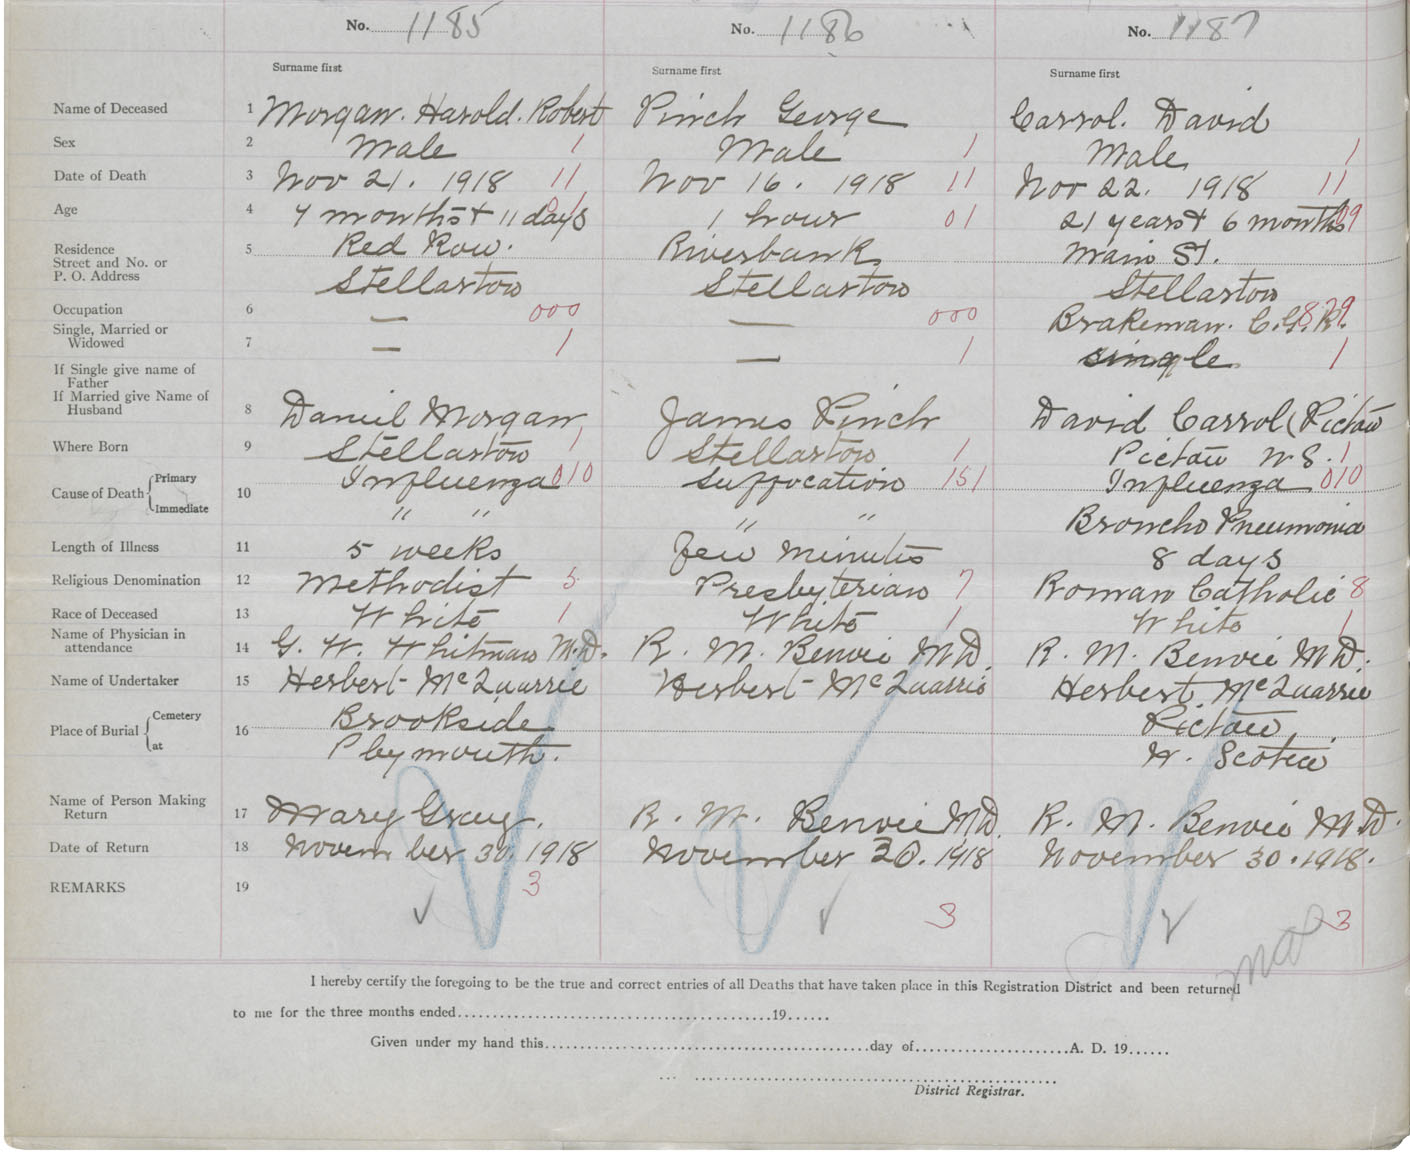 No. 1185 No. 1186 No. 1187
Surname first Surname first Surname first
Name of Deceased 1 Morgan. Harold. Robert Pinch George Carrol. David
Sex 2 Male 1 Male 1 Male 1
Date of Death 3 Nov 21. 1918 11 Nov 16. 1918 11 Nov 22. 1918 11
Age 4 7 months + 11 days 1 hour 01 21 years + 6 months 09
Residence 5 Red Row. Riverbank Main St.
Street and No. or
P. O. Address Stellarton Stellarton Stellarton
Occupation 6 — 000 — 000 Brakeman. C.G.R. 879
Single, Married or
Widowed 7 — 1 — 1 single 1
If Single give name of
Father
If Married give Name of
Husband 8 Daniel Morgan James Pinch David Carrol (Pictou
Where Born 9 Stellarton 1 Stellarton 1 Pictou N S. 1
Cause of Death { Primary 10 Influenza 010 Suffocation 151 Influenza 010
Immediate " " " " Broncho Pneumonia
Length of Illness 11 5 weeks Few minutes 8 days
Religious Denomination 12 Methodist 5 Presbyterian 7 Roman Catholic 8
Race of Deceased 13 White 1 White 1 White 1
Name of Physician in
attendance 14 G. W. Whitman M.D. R. M. Benvie MD. R. M. Benvie MD.
Name of Undertaker 15 Herbert McQuarrie Herbert McQuarrie Herbert McQuarrie
Place of Burial { Cemetery 16 Brookside Pictou
at Plymouth. N. Scotia
Name of Person Making
Return 17 Mary Gray. R. M. Benvie MD. R. M. Benvie M.D.
Date of Return 18 November 30. 1918 November 30. 1918 November 30. 1918.
REMARKS 19 3 3 3
I hereby certify the foregoing to be the true and correct entries of all Deaths that have taken place in this Registration District and been returned
to me for the three months ended 19
Given under my hand this day of A. D. 19
District Registrar.